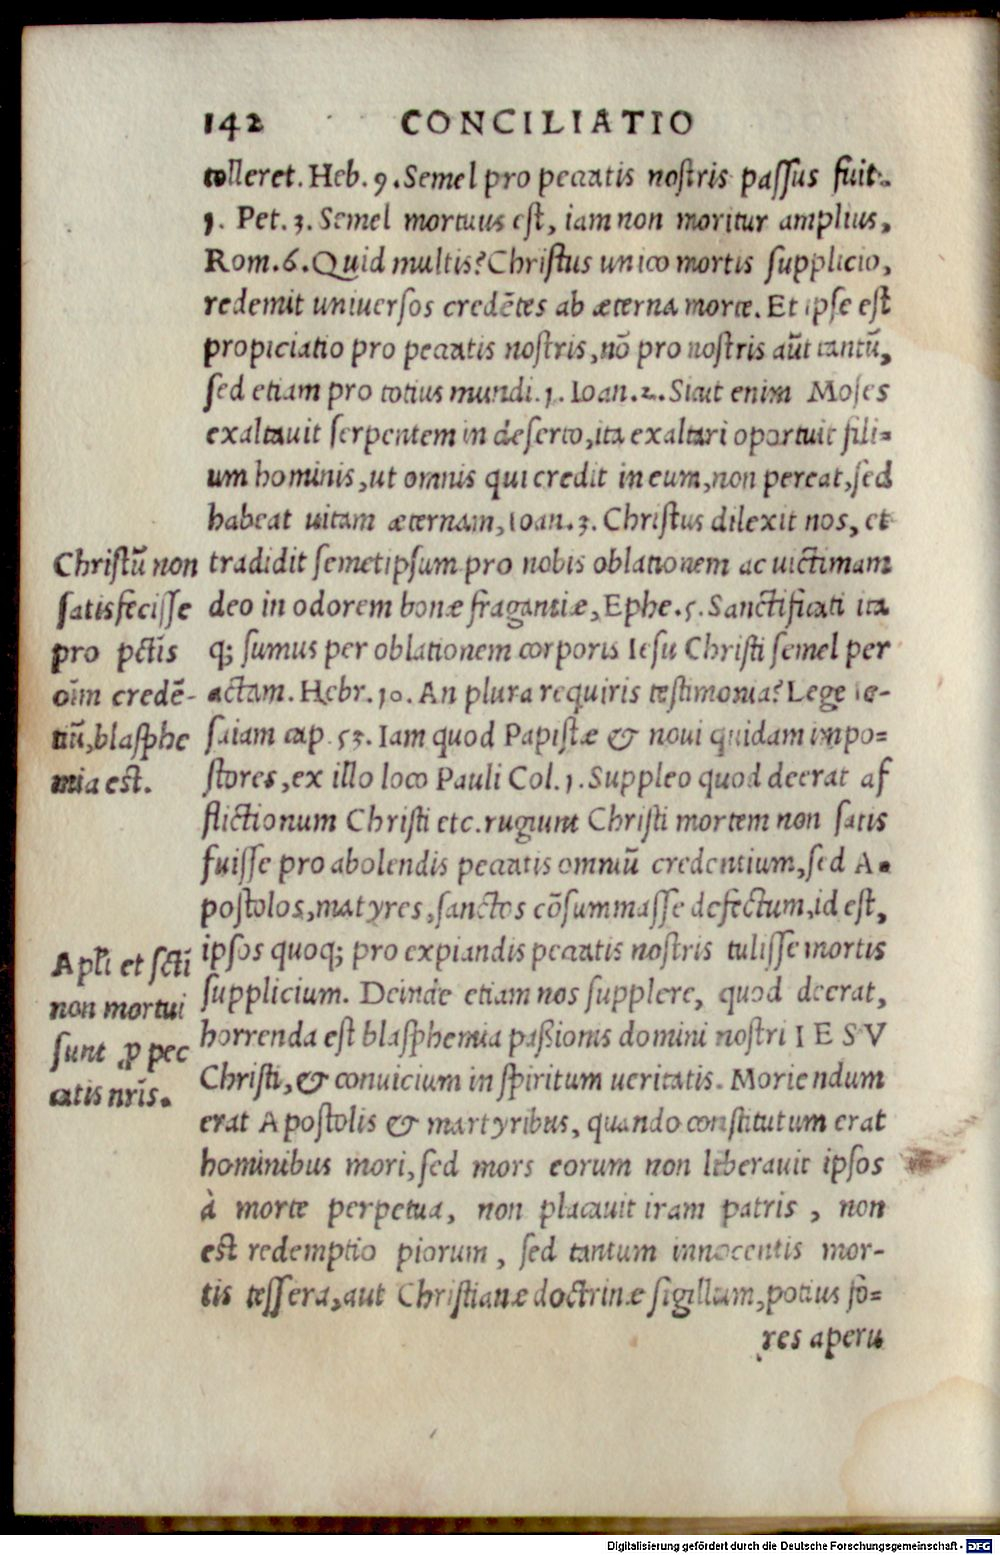 142 CONCILIATIO
tolleret. Heb. 9. Semel pro peccatis nostris passus fuit.
1. Pet. 3. Semel mortuus est, iam non moritur amplius,
Rom. 6. Quid multis? Christus unico mortis supplicio,
redemit uniuersos credẽtes ab æterna morte. Et ipse est
propiciatio pro peccatis nostris, nõ pro nostris aũt tantũ,
sed etiam pro totius mundi. 1. Ioan. 2. Sicut enim Moses
exaltauit serpentem in deserto, ita exaltari oportuit fili=
um hominis, ut omnis qui credit in eum, non pereat, sed
habeat uitam æternam, Ioan. 3. Christus dilexit nos, et
tradidit semetipsum pro nobis oblationem ac uictimam
deo in odorem bonæ fragantiæ, Ephe. 5. Sanctificati ita
q; sumus per oblationem corporis Iesu Christi semel per
actam. Hebr. 10. An plura requiris testimonia? Lege Ie-
saiam cap. 53. Iam quod Papistæ & noui quidam impo=
stores, ex illo loco Pauli Col. 1. Suppleo quod deerat af
flictionum Christi etc. rugiunt Christi mortem non satis
fuisse pro abolendis peccatis omniũ credentium, sed A-
postolos, matyres, sanctos cõsummasse defectum, id est,
ipsos quoq; pro expiandis peccatis nostris tulisse mortis
supplicium. Deinde etiam nos supplere, quod deerat,
horrenda est blasphemia paßionis domini nostri IESV
Christi, & conuicium in spiritum ueritatis. Moriendum
erat Apostolis & martyribus, quando constitutum erat
hominibus mori, sed mors eorum non liberauit ipsos
à morte perpetua, non placauit iram patris, non
est redemptio piorum, sed tantum innocentis mor-
tis tessera, aut Christianæ doctrinæ sigillum, potius fo=
res aperu
Christũ non
satisfecisse
pro pctĩs
oĩm credẽ-
tiũ, blasphe
mia est.
Apli et sctĩ
non mortui
sunt ꝓ pec
catis nr̃is.
Digitalisierung gefördert durch die Deutsche Forschungsgemeinschaft - DFG